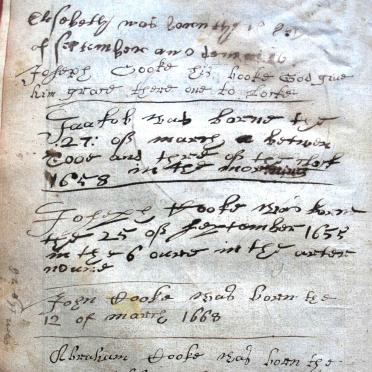 Elsebeth was born the
of September ano dom
Joseph Cooke his booke God give
him grace there one to Looke
Jaakob was borne the
.27: of march a betwen
tooe and three of the Clok
1658 in the morning
Joseph Cooke was borne
the 25 of September 1655
in the 6 oure in the arter
noune
John Cooke was born the
12 of march 1668
Abraham Cooke was born the